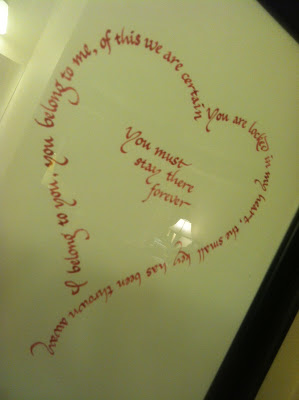 I belong to you, you belong to me, of this we are certain
You are locked in my heart, the small key has been thrown away
You must
stay there
forever